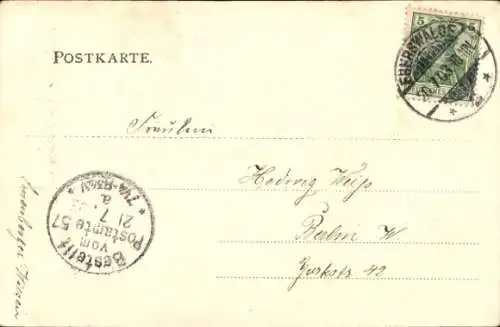 POSTKARTE.
5 5
EBERSWALDE
Fräulein
Hedwig Weiß
Berlin W
Yorkstr 42
Bestellt
vom
Postamte 57
21 7